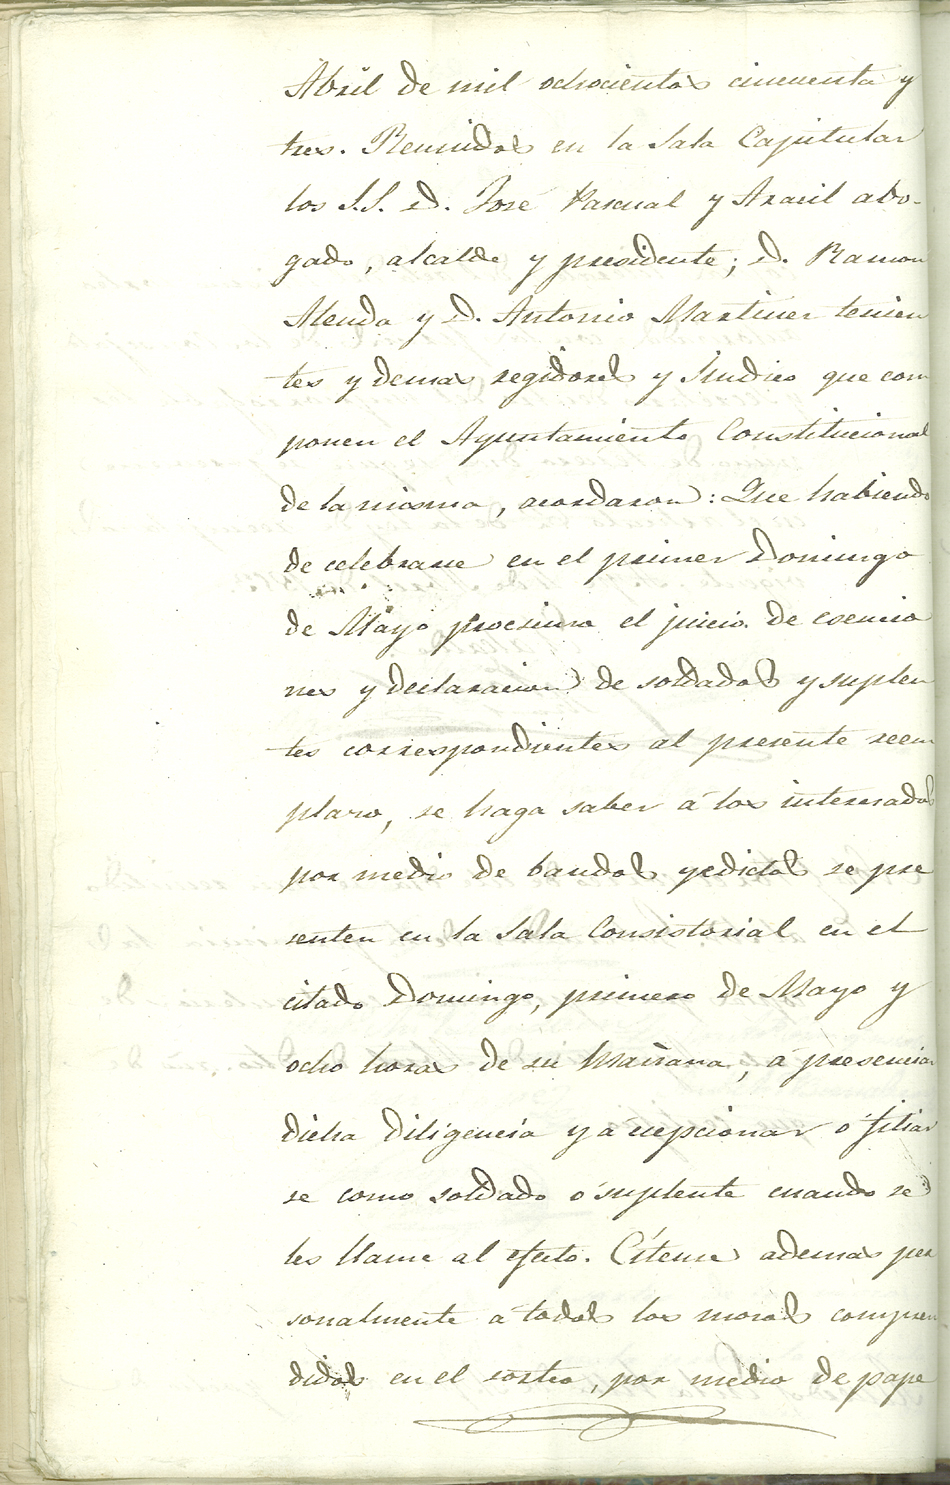 Abril de mil ochocientos cincuenta y
tres. Reunidos en la Sala Capitular
los S.S. D. José Pascual y Aracil abo-
gado, alcalde y presidente; D. Ramon
Alenda y D. Antonio Martinez tenien
tes y demas regidores y Sindico que com
ponen el Ayuntamiento Constitucional
de la misma, acordaron: Que habiendo
de celebrarse en el primer Domingo
de Mayo procsimo el juicio de esencio
nes y declaracion de soldados y suplen
tes correspondientes al presente reem
plazo, se haga saber á los interesados
por medio de bandos y edictos se pre
senten en la Sala Consistorial en el
citado Domingo, primero de Mayo y
ocho horas de su mañana, á presenciar
dicha diligencia y a cepcionar ó filiar
se como soldado ó suplente cuando se
les llame al efecto. Cítense ademas per
sonalmente á todos los mozos compren
didos en el sorteo, por medio de pape